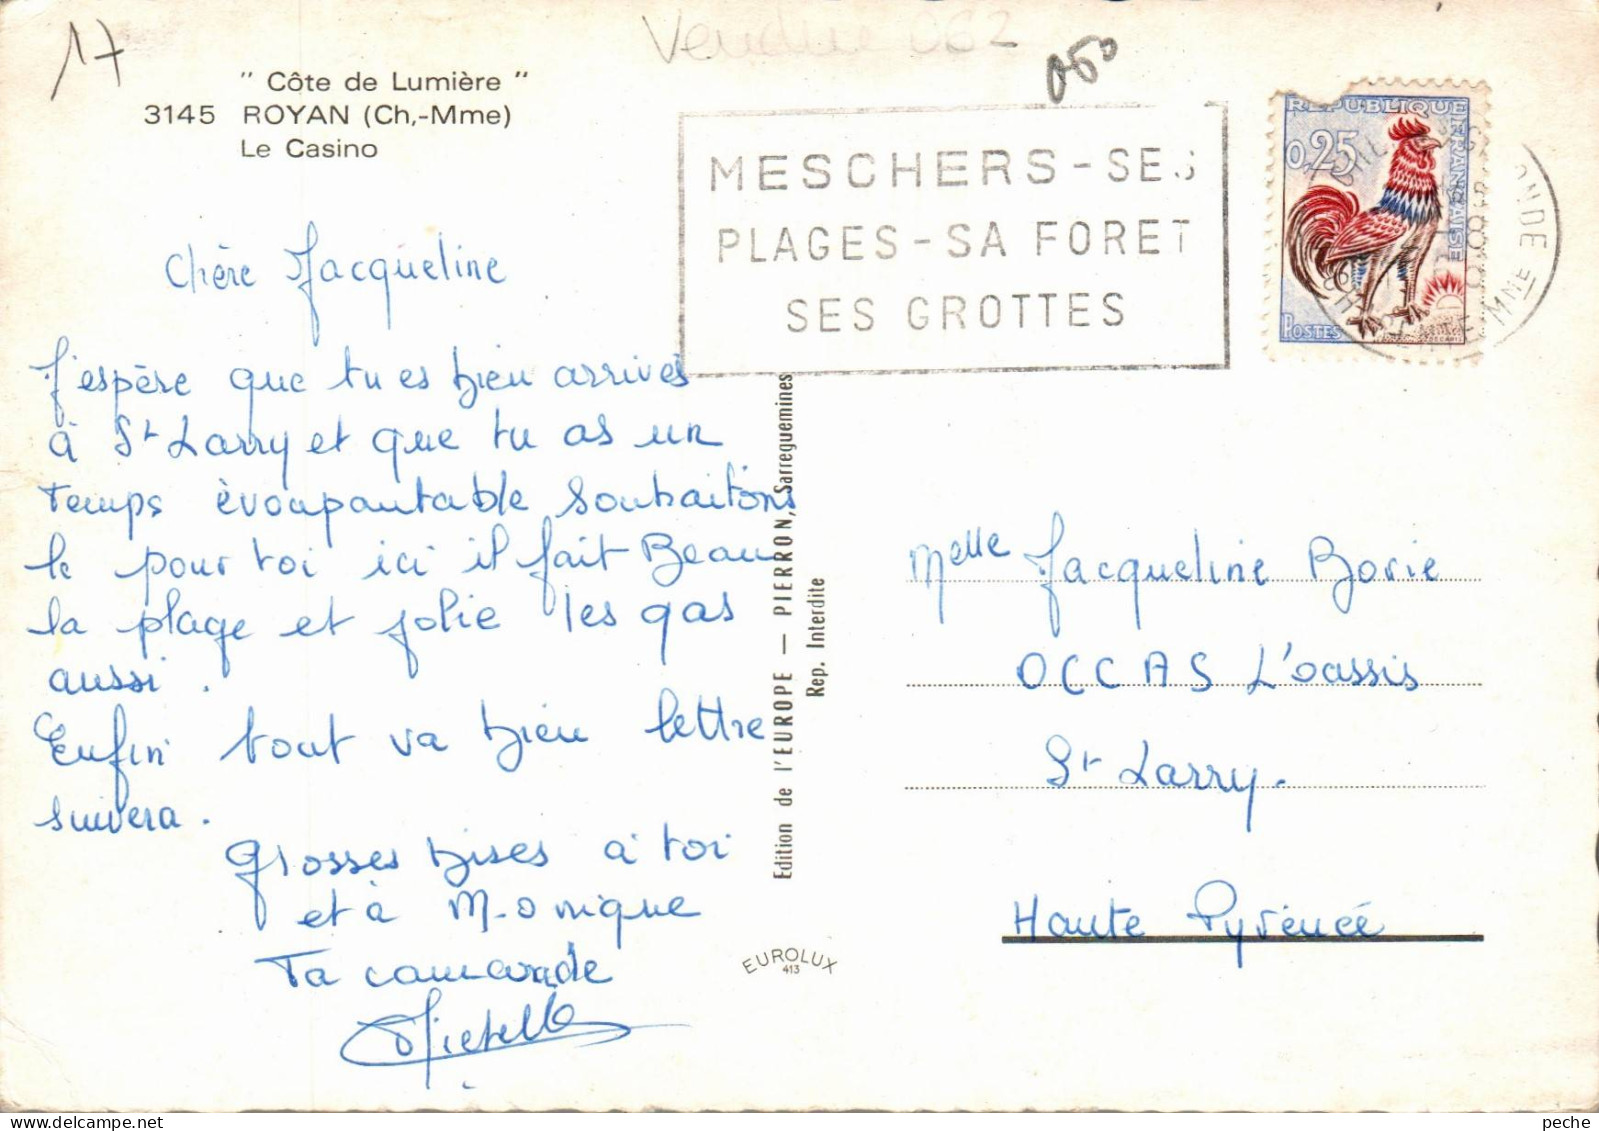 17
Vendue 062
050
" Côte de Lumière "
3145 ROYAN (Ch,-Mme)
Le Casino
MESCHERS - SES
PLAGES - SA FORET
SES GROTTES
REPUBLIQUE FRANÇAISE
0,25
POSTES
Chère Jacqueline
J'espère que tu es bien arrivés
à St Larry et que tu as un
temps èvoapantable souhaitons
le pour toi ici il fait Beau
la plage et jolie les gas
aussi.
Enfin tout va bien lettre
suivera.
Grosses bises a toi
et à Monique
Ta camarade
Edition de l'EUROPE — PIERRON, Sarreguemines
Rep. Interdite
EUROLUX
413
Melle Jacqueline Borie
OCCAS L'oassis
St Larry.
Haute Pyrénée
peche